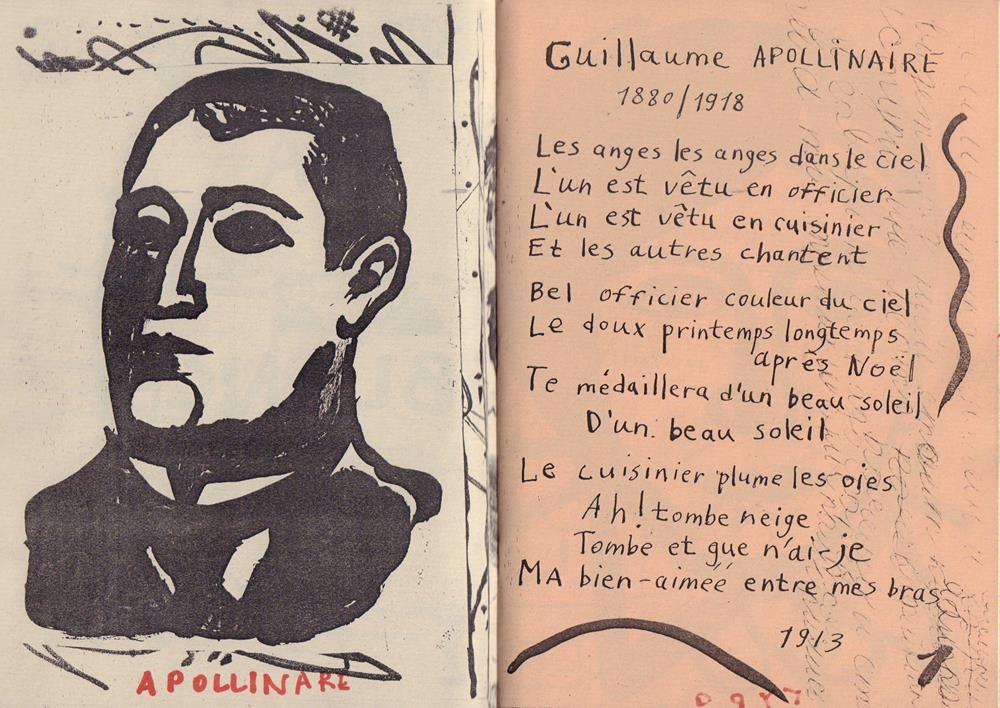 APOLLINARE
Guillaume APOLLINAIRE
1880/1918
Les anges les anges dans le ciel
L'un est vêtu en officier
L'un est vêtu en cuisinier
Et les autres chantent
Bel officier couleur du ciel
Le doux printemps longtemps
après Noël
Te médaillera d'un beau soleil
D'un. beau soleil
Le cuisinier plume les oies
Ah! tombe neige
Tombe et que n'ai-je
MA bien-aimée entre mes bras
1913